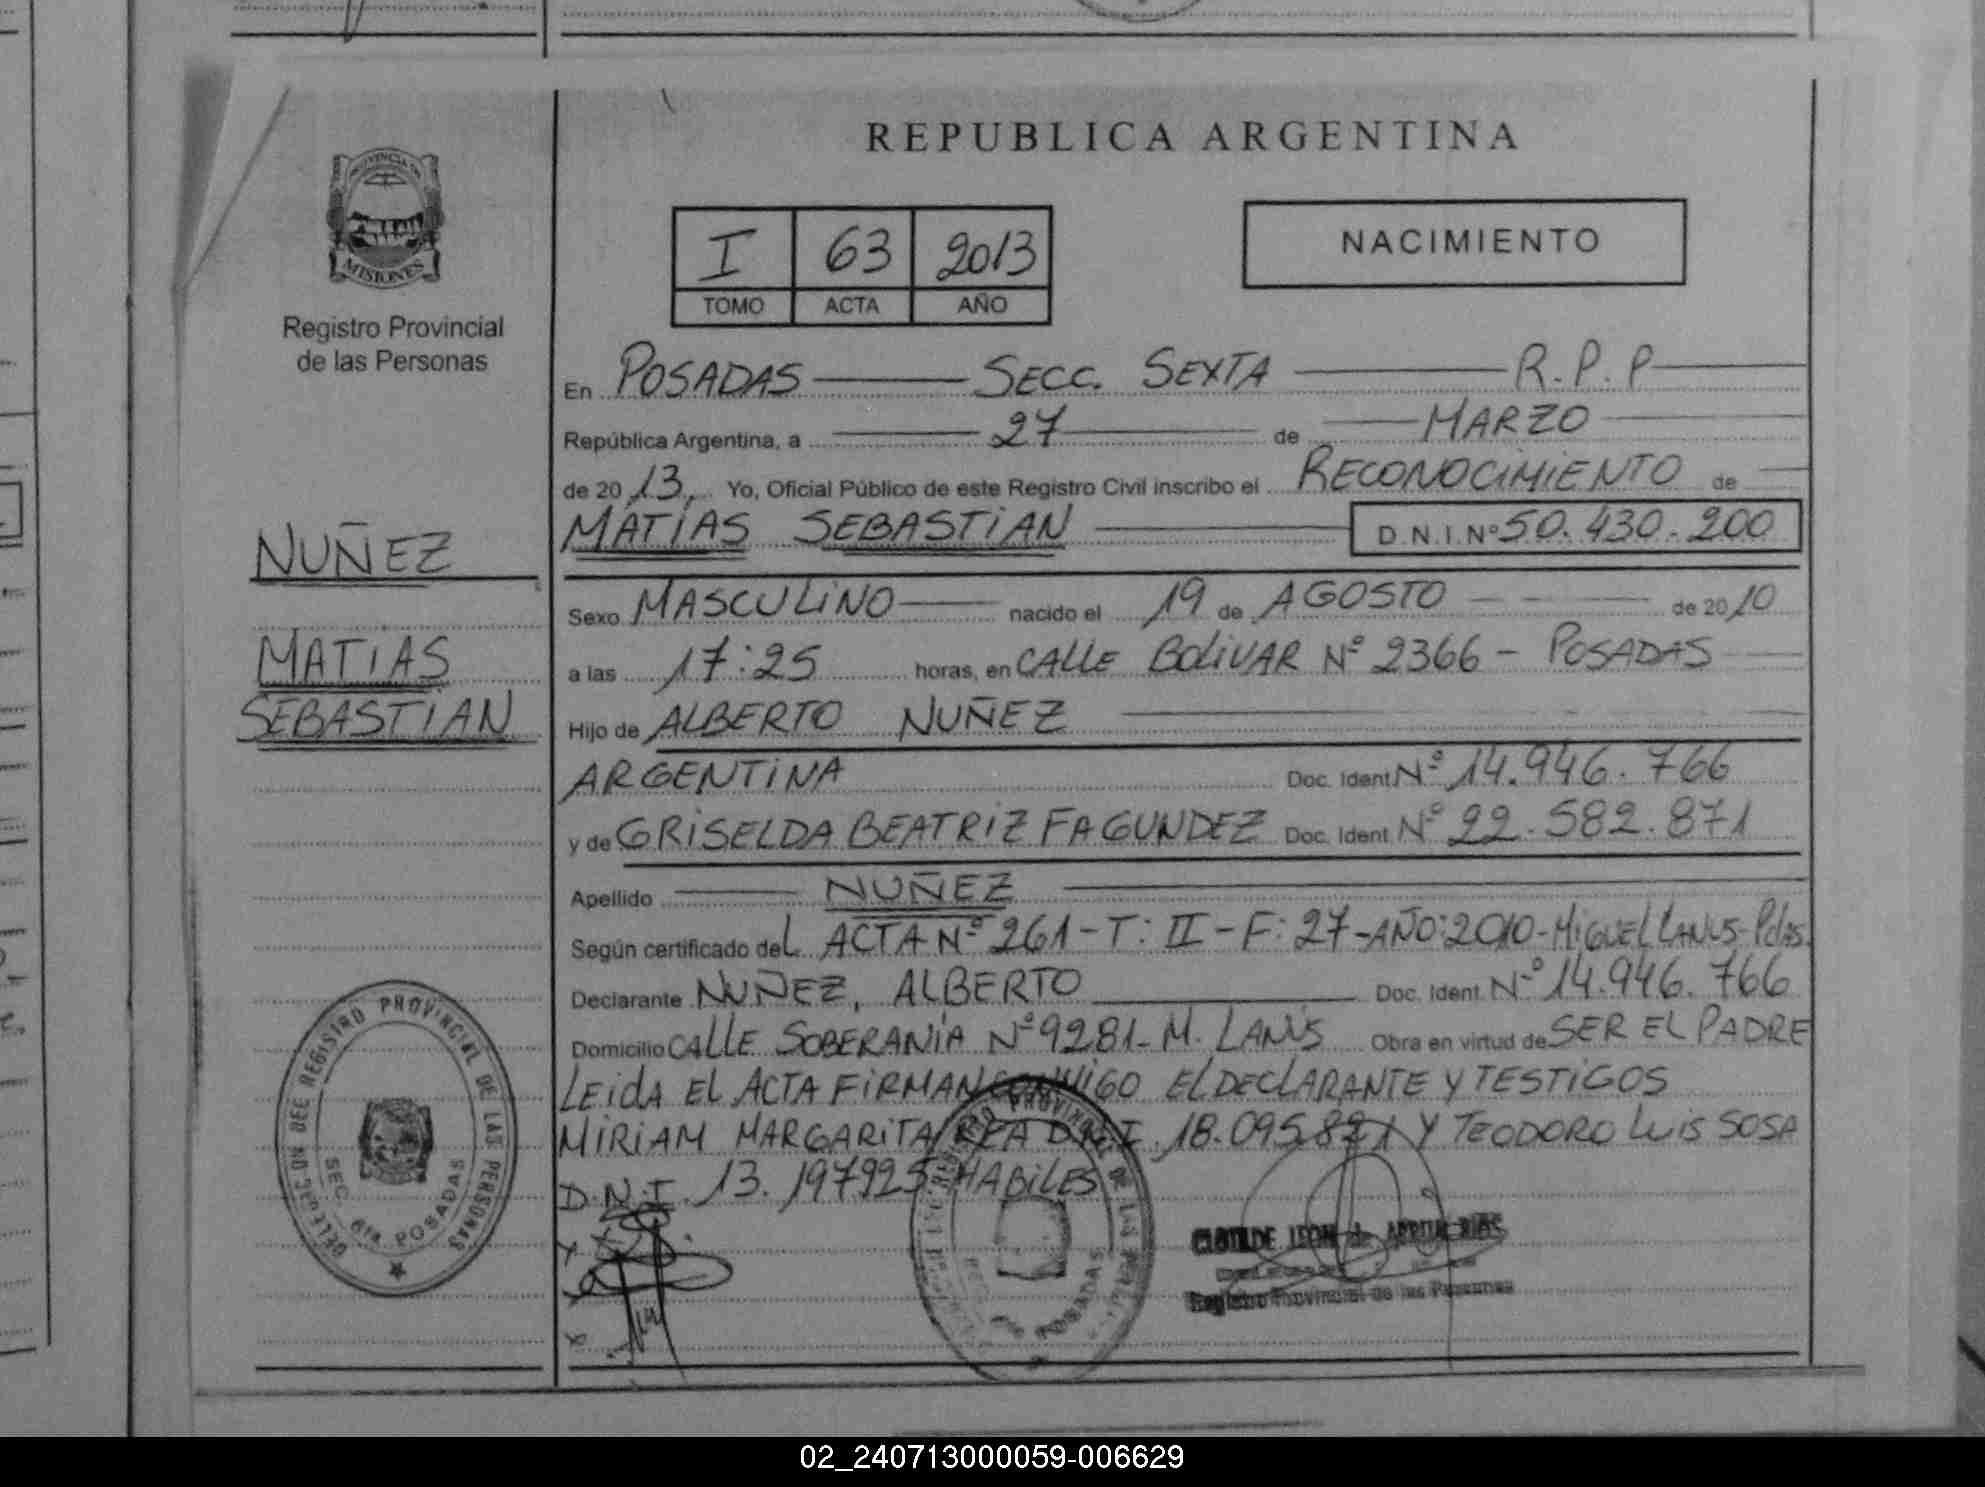 REPUBLICA ARGENTINA
PROVINCIA DE
MISIONES
Registro Provincial
de las Personas
I 63 2013
TOMO ACTA AÑO
NACIMIENTO
En POSADAS SECC. SEXTA R.P.P
República Argentina, a 27 de MARZO
de 2013, Yo, Oficial Público de este Registro Civil inscribo el RECONOCIMIENTO de
MATIAS SEBASTIAN D.N.I. Nº 50.430.200
NUÑEZ
MATIAS
SEBASTIAN
Sexo MASCULINO nacido el 19 de AGOSTO de 2010
a las 17:25 horas, en CALLE BOLIVAR Nº 2366 - POSADAS
Hijo de ALBERTO NUÑEZ
ARGENTINA Doc. Ident Nº 14.946.766
y de GRISELDA BEATRIZ FAGUNDEZ Doc. Ident. Nº 22.582.871
Apellido NUÑEZ
Según certificado del ACTA Nº 261 - T: II - F: 27 - AÑO: 2010 - MIGUEL LANUS - Pdas.
Declarante NUÑEZ, ALBERTO Doc. Ident. Nº 14.946.766
Domicilio CALLE SOBERANIA Nº 9281 - M. LANUS Obra en virtud de SER EL PADRE
LEIDA EL ACTA FIRMAN CONMIGO EL DECLARANTE Y TESTIGOS
MIRIAM MARGARITA REA D.N.I. 18.095.871 Y TEODORO LUIS SOSA
D.N.I. 13.197925 HABILES
REGISTRO PROVINCIAL DE LAS PERSONAS
SEC. 6ta. POSADAS
PROVINCIAL DE LAS
POSADAS
CLOTILDE
Registro Provincial de las Personas
02_240713000059-006629